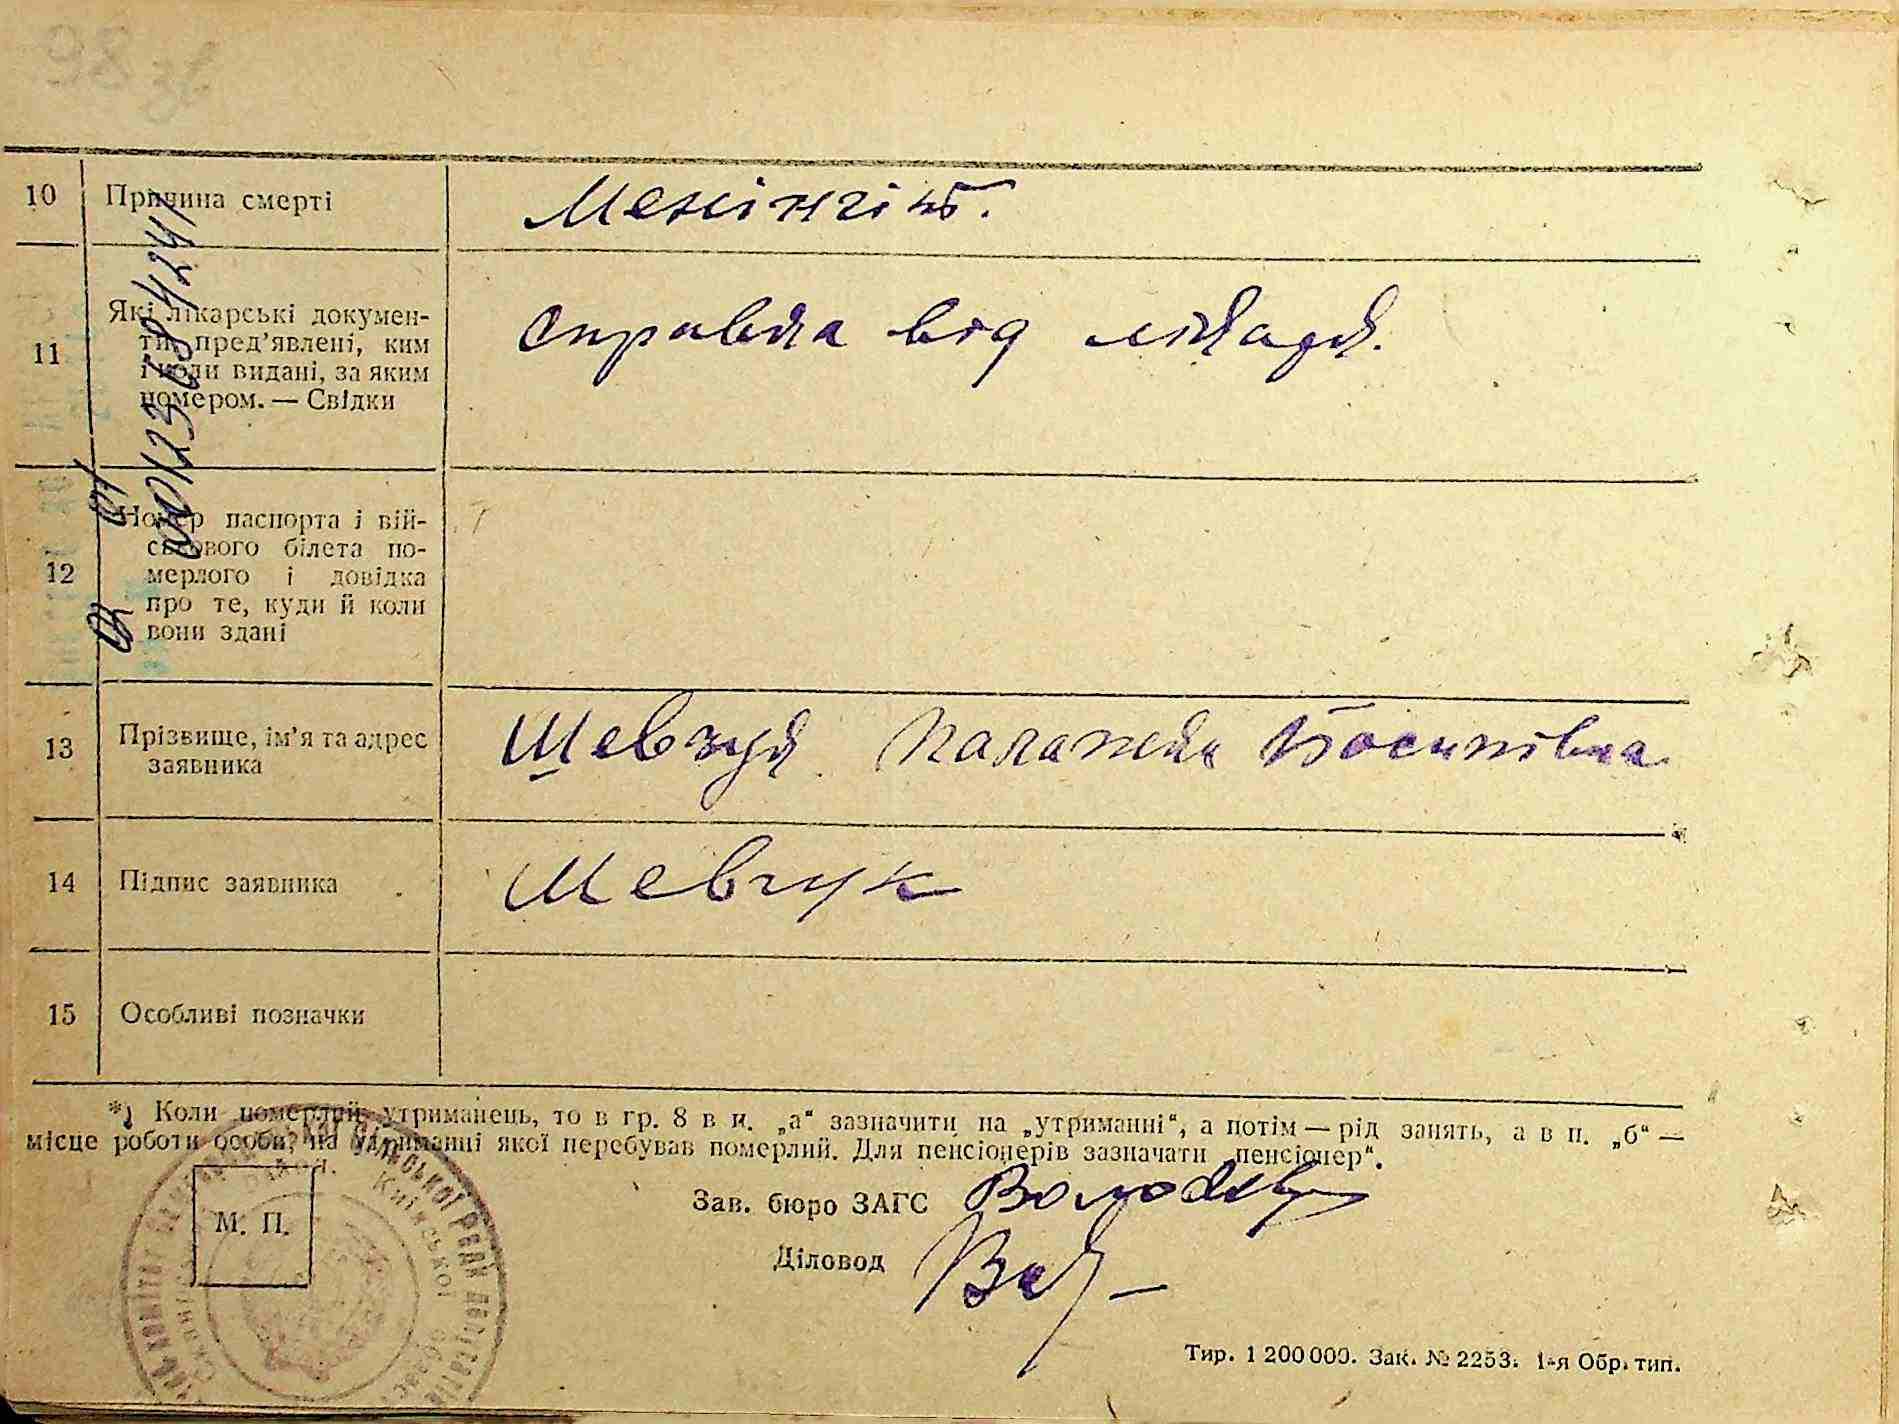 10 Причина смерті Менінгіт.
11 Які лікарські докумен-
ти пред’явлені, ким
і коли видані, за яким
номером. — Свідки
справка від лікаря.
12 Номер паспорта і вій-
ськового білета по-
мерлого і довідка
про те, куди й коли
вони здані
13 Прізвище, ім’я та адрес
заявника
Шевчук Палажка Йосипівна
14 Підпис заявника Шевчук
15 Особливі позначки
*) Коли померлий утриманець, то в гр. 8 в п. „а“ зазначити на „утриманні“, а потім — рід занять, а в п. „б“ —
місце роботи особи, на утриманні якої перебував померлий. Для пенсіонерів зазначати „пенсіонер“.
М. П.
Зав. бюро ЗАГС
Діловод
Тир. 1 200 000. Зак. № 2253. 1-я Обр. тип.